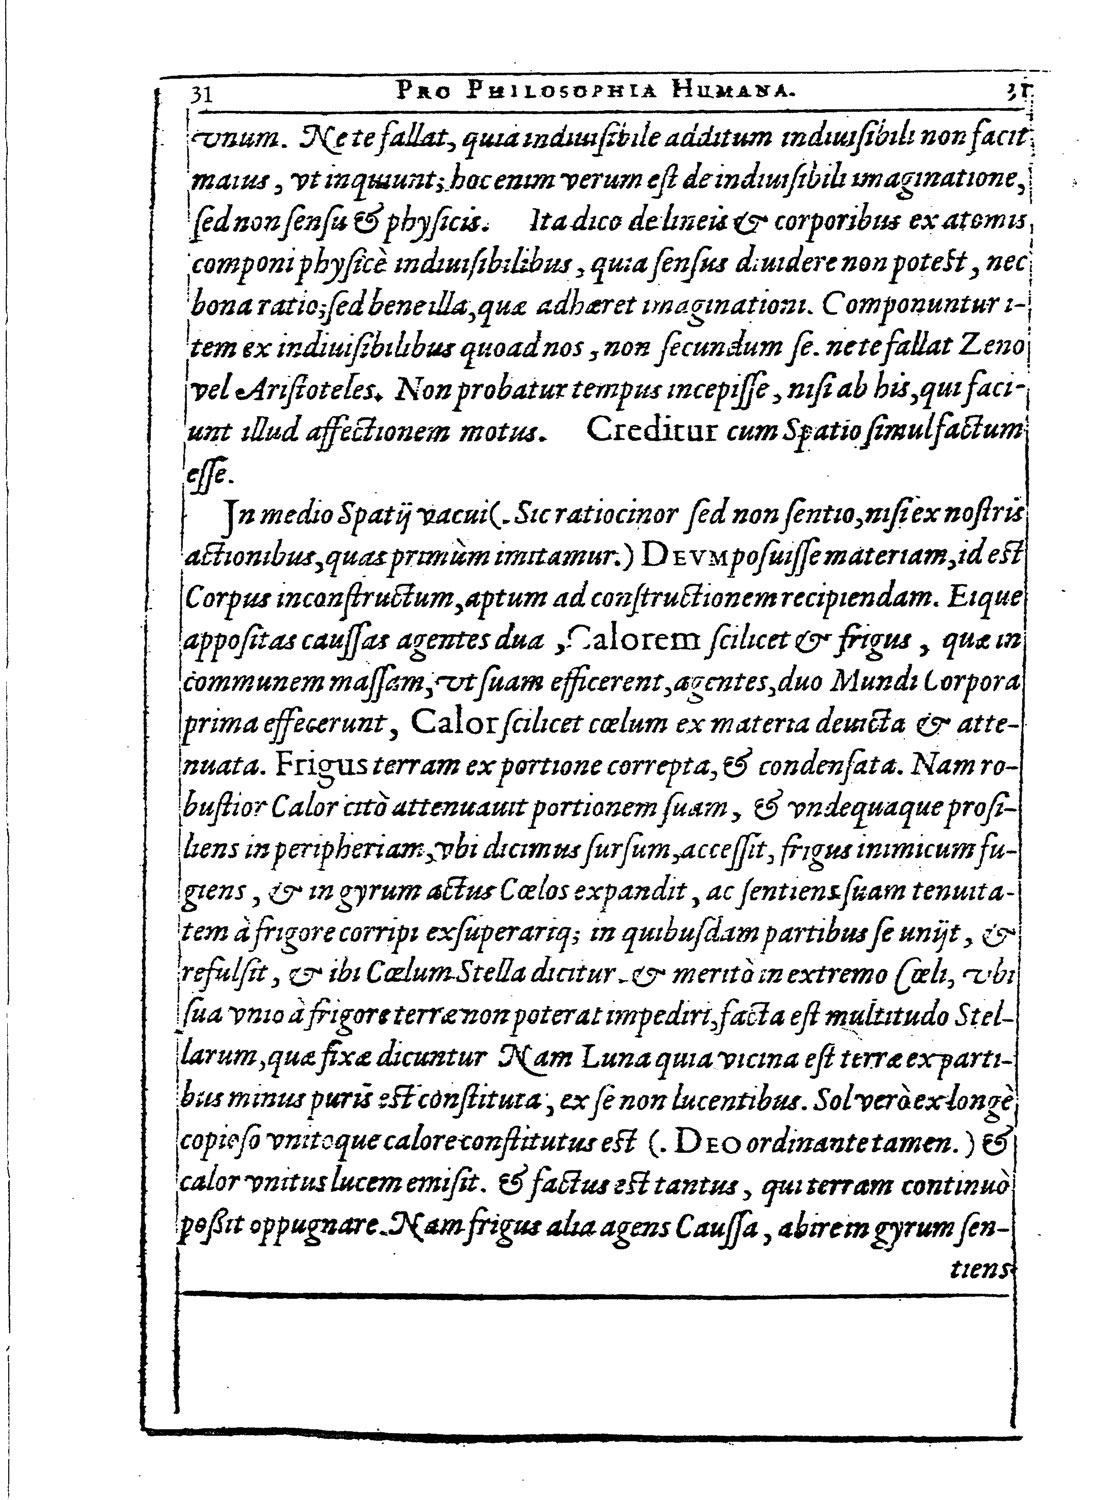 31 PRO PHILOSOPHIA HUMANA. 31
vnum. Ne te fallat, quia indiuiſibile additum indiuiſibili non facit
maius, vt inquiunt; hoc enim verum eſt de indiuiſibili imaginatione,
ſed non ſenſu & phyſicis. Ita dico de lineis & corporibus ex atomis
componi phyſicè indiuiſibilibus, quia ſenſus diuidere non poteſt, nec
bona ratio; ſed bene illa, quæ adhæret imaginationi. Componuntur i-
tem ex indiuiſibilibus quoad nos, non ſecundum ſe. ne te fallat Zeno
vel Ariſtoteles. Non probatur tempus incepiſſe, niſi ab his, qui faci-
unt illud affectionem motus. Creditur cum Spatio ſimul factum
eſſe.
In medio Spatij vacui (. Sic ratiocinor ſed non ſentio, niſi ex noſtris
actionibus, quas primùm imitamur.) DEVM poſuiſſe materiam, id eſt
Corpus inconſtructum, aptum ad conſtructionem recipiendam. Eique
appoſitas cauſſas agentes dua, Calorem ſcilicet & frigus, quæ in
communem maſſam, vt ſuam efficerent, agentes, duo Mundi Corpora
prima effecerunt, Calor ſcilicet cœlum ex materia deuicta & atte-
nuata. Frigus terram ex portione correpta, & condenſata. Nam ro-
buſtior Calor citò attenuauit portionem ſuam, & vndequaque proſi-
liens in peripheriam, vbi dicimus ſurſum, acceſſit, frigus inimicum fu-
giens, & in gyrum actus Cœlos expandit, ac ſentiens ſuam tenuita-
tem à frigore corripi exſuperariq; in quibuſdam partibus ſe unijt, &
refulſit, & ibi Cœlum Stella dicitur. & meritò in extremo Cœli, vbi
ſua vnio à frigore terræ non poterat impediri, facta eſt multitudo Stel-
larum, quæ fixæ dicuntur Nam Luna quia vicina eſt terræ ex parti-
bus minus puris eſt conſtituta, ex ſe non lucentibus. Sol verò ex longè
copioſo vnitoque calore conſtitutus eſt (. DEO ordinante tamen.) &
calor vnitus lucem emiſit. & factus eſt tantus, qui terram continuò
poßit oppugnare. Nam frigus alia agens Cauſſa, abire in gyrum ſen-
tiens